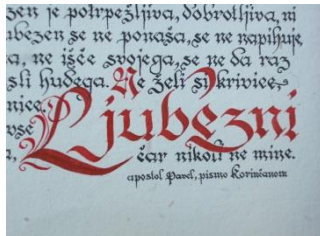 zen je potrpežljiva, dobrotljiva, ni
ubezen se ne ponaša, se ne napihuje,
a, ne išče svojega, se ne da raz
sli hudega. Ne želi si krivice
nice.
vse
Ljubezni
čar nikoli ne mine.
apostol Pavel, pismo Korinčanom